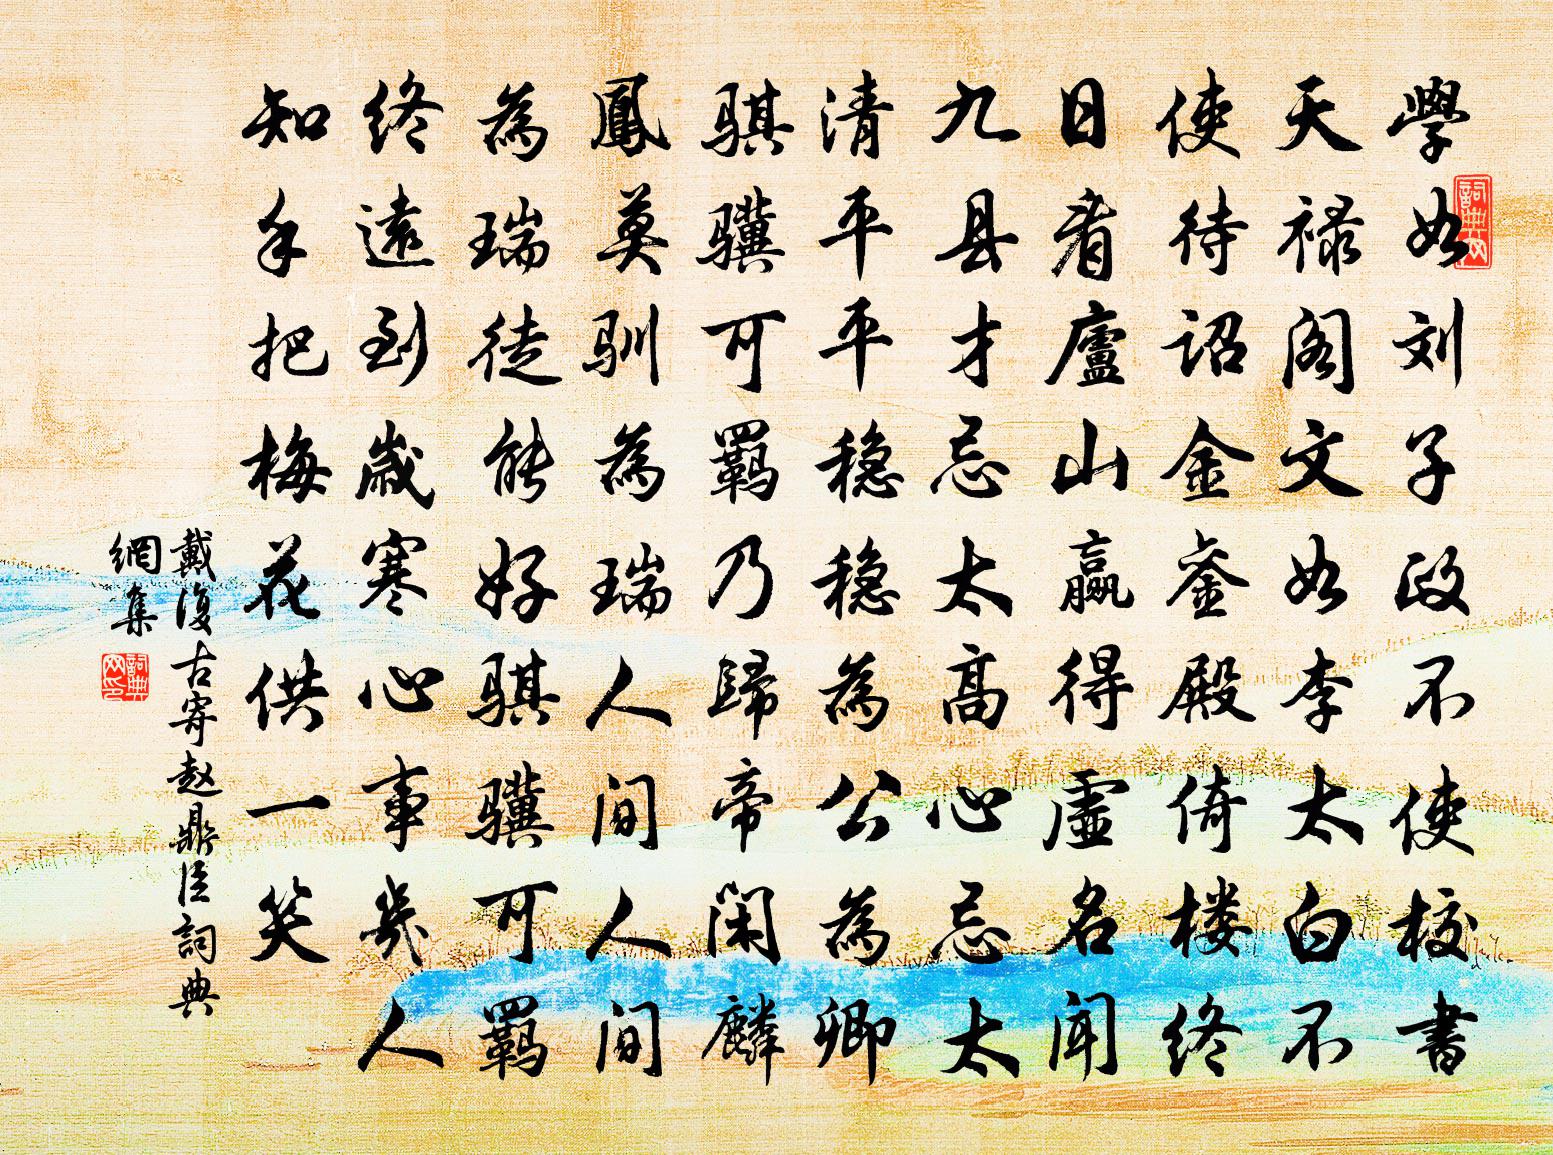 學如刘子政不使校書
天禄阁文如李太白不
使待诏金銮殿倚楼终
日看廬山赢得虛名闻
九县才忌太高心忌太
清平平稳稳為公為卿
骐骥可羁乃歸帝闲麟
鳳莫驯為瑞人间人间
為瑞徒能好骐骥可羁
终遠到歲寒心事幾人
知手把梅花供一笑
戴復古寄赵鼎臣詞典
網集
詞典网
詞典网印